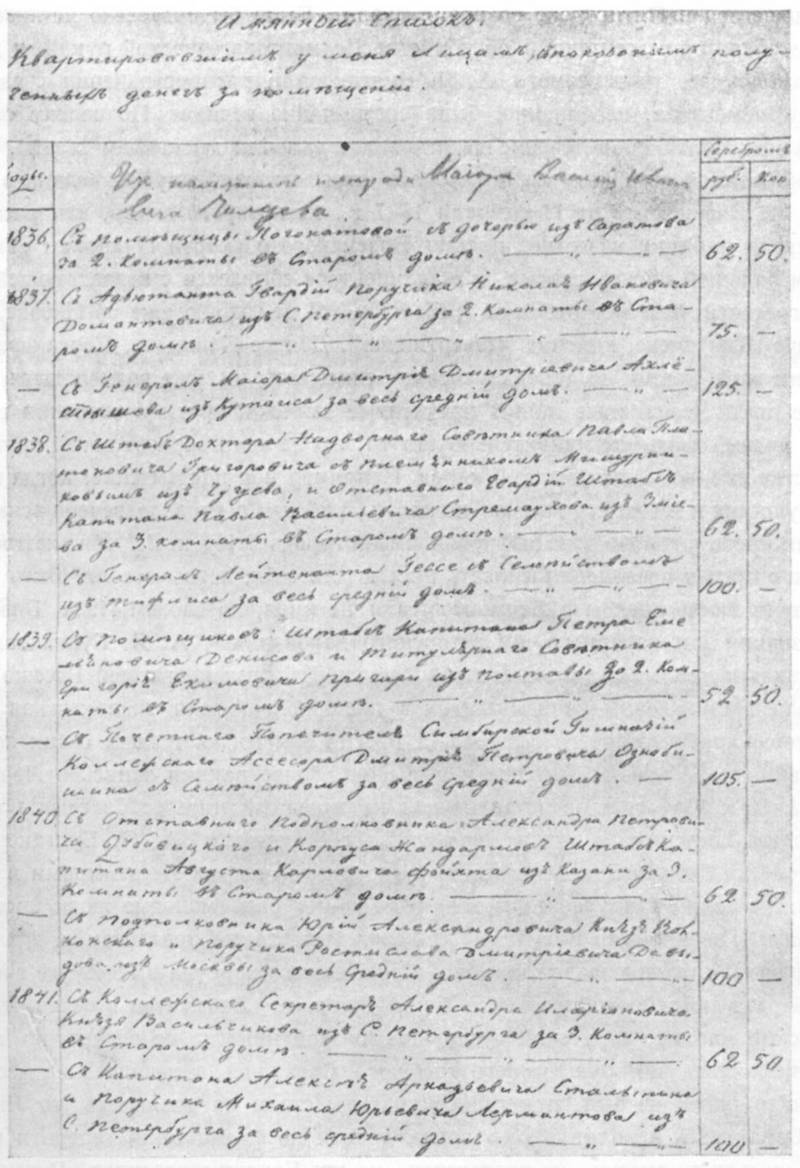 Имянной Списокъ.
Квартировавшимъ у меня Лицамъ, спокозаниемъ полу-
ченныхъ денегъ за помѣщении.
Годы.
Серебромъ
руб. Коп
Маіора Василія Ивано
вича Чиляева.
1836. Съ помѣщицы Погонатовой съ дочерью изъ Саратова
за 2. Комнаты въ Старомъ домѣ. — „ — 62. 50.
1837. Съ Адъютанта Гвардій Поручика Николая Ивановича
Домантовича изъ С. Петербурга за 2. Комнаты въ Ста-
ромъ домѣ. — „ — „ — „ — „ — 75. —
— Съ Генералъ Маіора Дмитрія Дмитріевича Ахлё-
стышова изъ Кутаиса за весь средній домъ. — „ — 125. —
1838. Съ Штабъ Доктора Надворнаго Совѣтника Павла Пла-
тоновича Григоровича съ племѣнникомъ Мишурни-
ковымъ изъ Чугуева, и Отставнаго Гвардій Штабсъ
Капитана Павла Васильевича Стремаухова изъ Зміе-
ва за 3. комнаты въ Старомъ домѣ. — „ — „ — 62. 50.
— Съ Генералъ Лейтенанта Гессе съ Семѣйствомъ
изъ Тифлиса за весь средній домъ. — „ — „ — 100. —
1839. Съ Помѣщиковъ: Штабсъ Капитана Петра Еме
льѣновича Денисова и Титулярнаго Совѣтника
Григорія Екимовича Пригари изъ Полтавы за 2. Ком-
наты въ Старомъ домѣ. — „ — „ — 52 50.
— Съ Почетнаго Попечителя Симбирской Гимназіи
Коллежскаго Ассесора Дмитрія Петровича Ознобі-
шина съ Семѣйствомъ за весь средній домъ. — 105. —
1840 Съ Отставнаго Подполковника Александра Петрови-
ча Дубавицкаго и Корпуса Жандармовъ Штабсъ Ка-
питана Августа Карловича Фойхта изъ Казани за 3.
Комнаты въ Старомъ домѣ. — „ — 62 50
— Съ Подполковника Юрій Александровича Князя Вол-
конскаго и Поручика Ростислава Дмитріевича Давы-
дова изъ Москвы за весь Средній домъ. — „ — 100 —
1841. Съ Коллежскаго Секретаря Александра Иларіоновича
Князя Васильчикова изъ С. Петербурга за 3. Комнаты
въ Старомъ домѣ. — „ — „ — „ — 62 50.
— Съ Капитана Алексѣя Аркадьевича Столыпина
и Поручика Михаила Юрьевича Лермантова изъ
С. Петербурга за весь средній домъ. — „ — 100 —